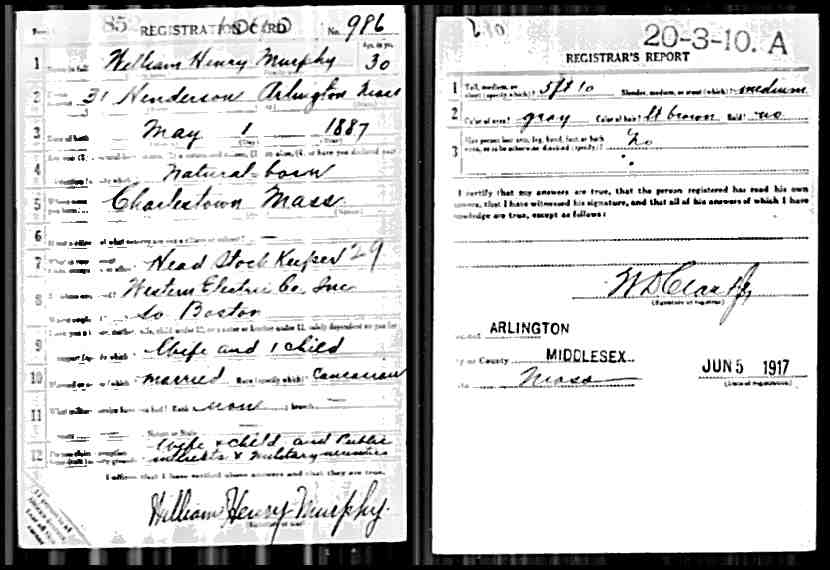 REGISTRATION CARD No. 986
1 William Henry Murphy Age, in yrs. 30
2 31 Henderson Arlington Mass
3 Date of birth May 1 1887
4 Natural-born
5 Charlestown Mass
6
7 Head Stock Keeper 29
8 Western Electric Co. Inc
So Boston
9 Wife and 1 child
10 Married Race (specify which)? Caucasian
11 What military service have you had? Rank none branch
12 Wife & child and Public
interests & military
I affirm that I have verified above answers and that they are true.
William Henry Murphy
20-3-10. A
REGISTRAR'S REPORT
1 Tall, medium, or short (specify which)? 5ft 10 Slender, medium, or stout (which)? medium
2 Color of eyes? gray Color of hair? lt brown Bald? no
3 Has person lost arm, leg, hand, foot, or both eyes, or is he otherwise disabled (specify)? No
I certify that my answers are true, that the person registered has read his own
answers, that I have witnessed his signature, and that all of his answers of which I have
knowledge are true, except as follows:
(Signature of registrar)
ARLINGTON
City or County MIDDLESEX
Mass
JUN 5 1917
(Date of registration)